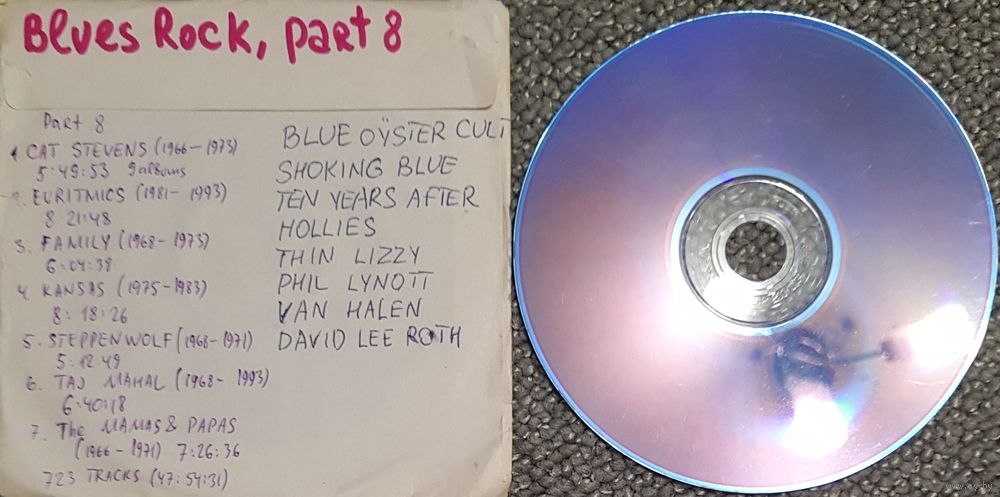 Blues Rock, part 8
Part 8
1 CAT STEVENS (1966-1973)
5:49:53 9albums
2. EURITMICS (1981-1993)
8:21:48
3. FAMILY (1968-1973)
6:04:38
4. KANSAS (1975-1983)
8:18:26
5. STEPPENWOLF (1968-1971)
5:12:49
6. TAJ MAHAL (1968-1993)
6:40:18
7. The MAMAS & PAPAS
(1966-1971) 7:26:36
723 TRACKS (47:54:31)
BLUE OŸSTER CULT
SHOKING BLUE
TEN YEARS AFTER
HOLLIES
THIN LIZZY
PHIL LYNOTT
VAN HALEN
DAVID LEE ROTH